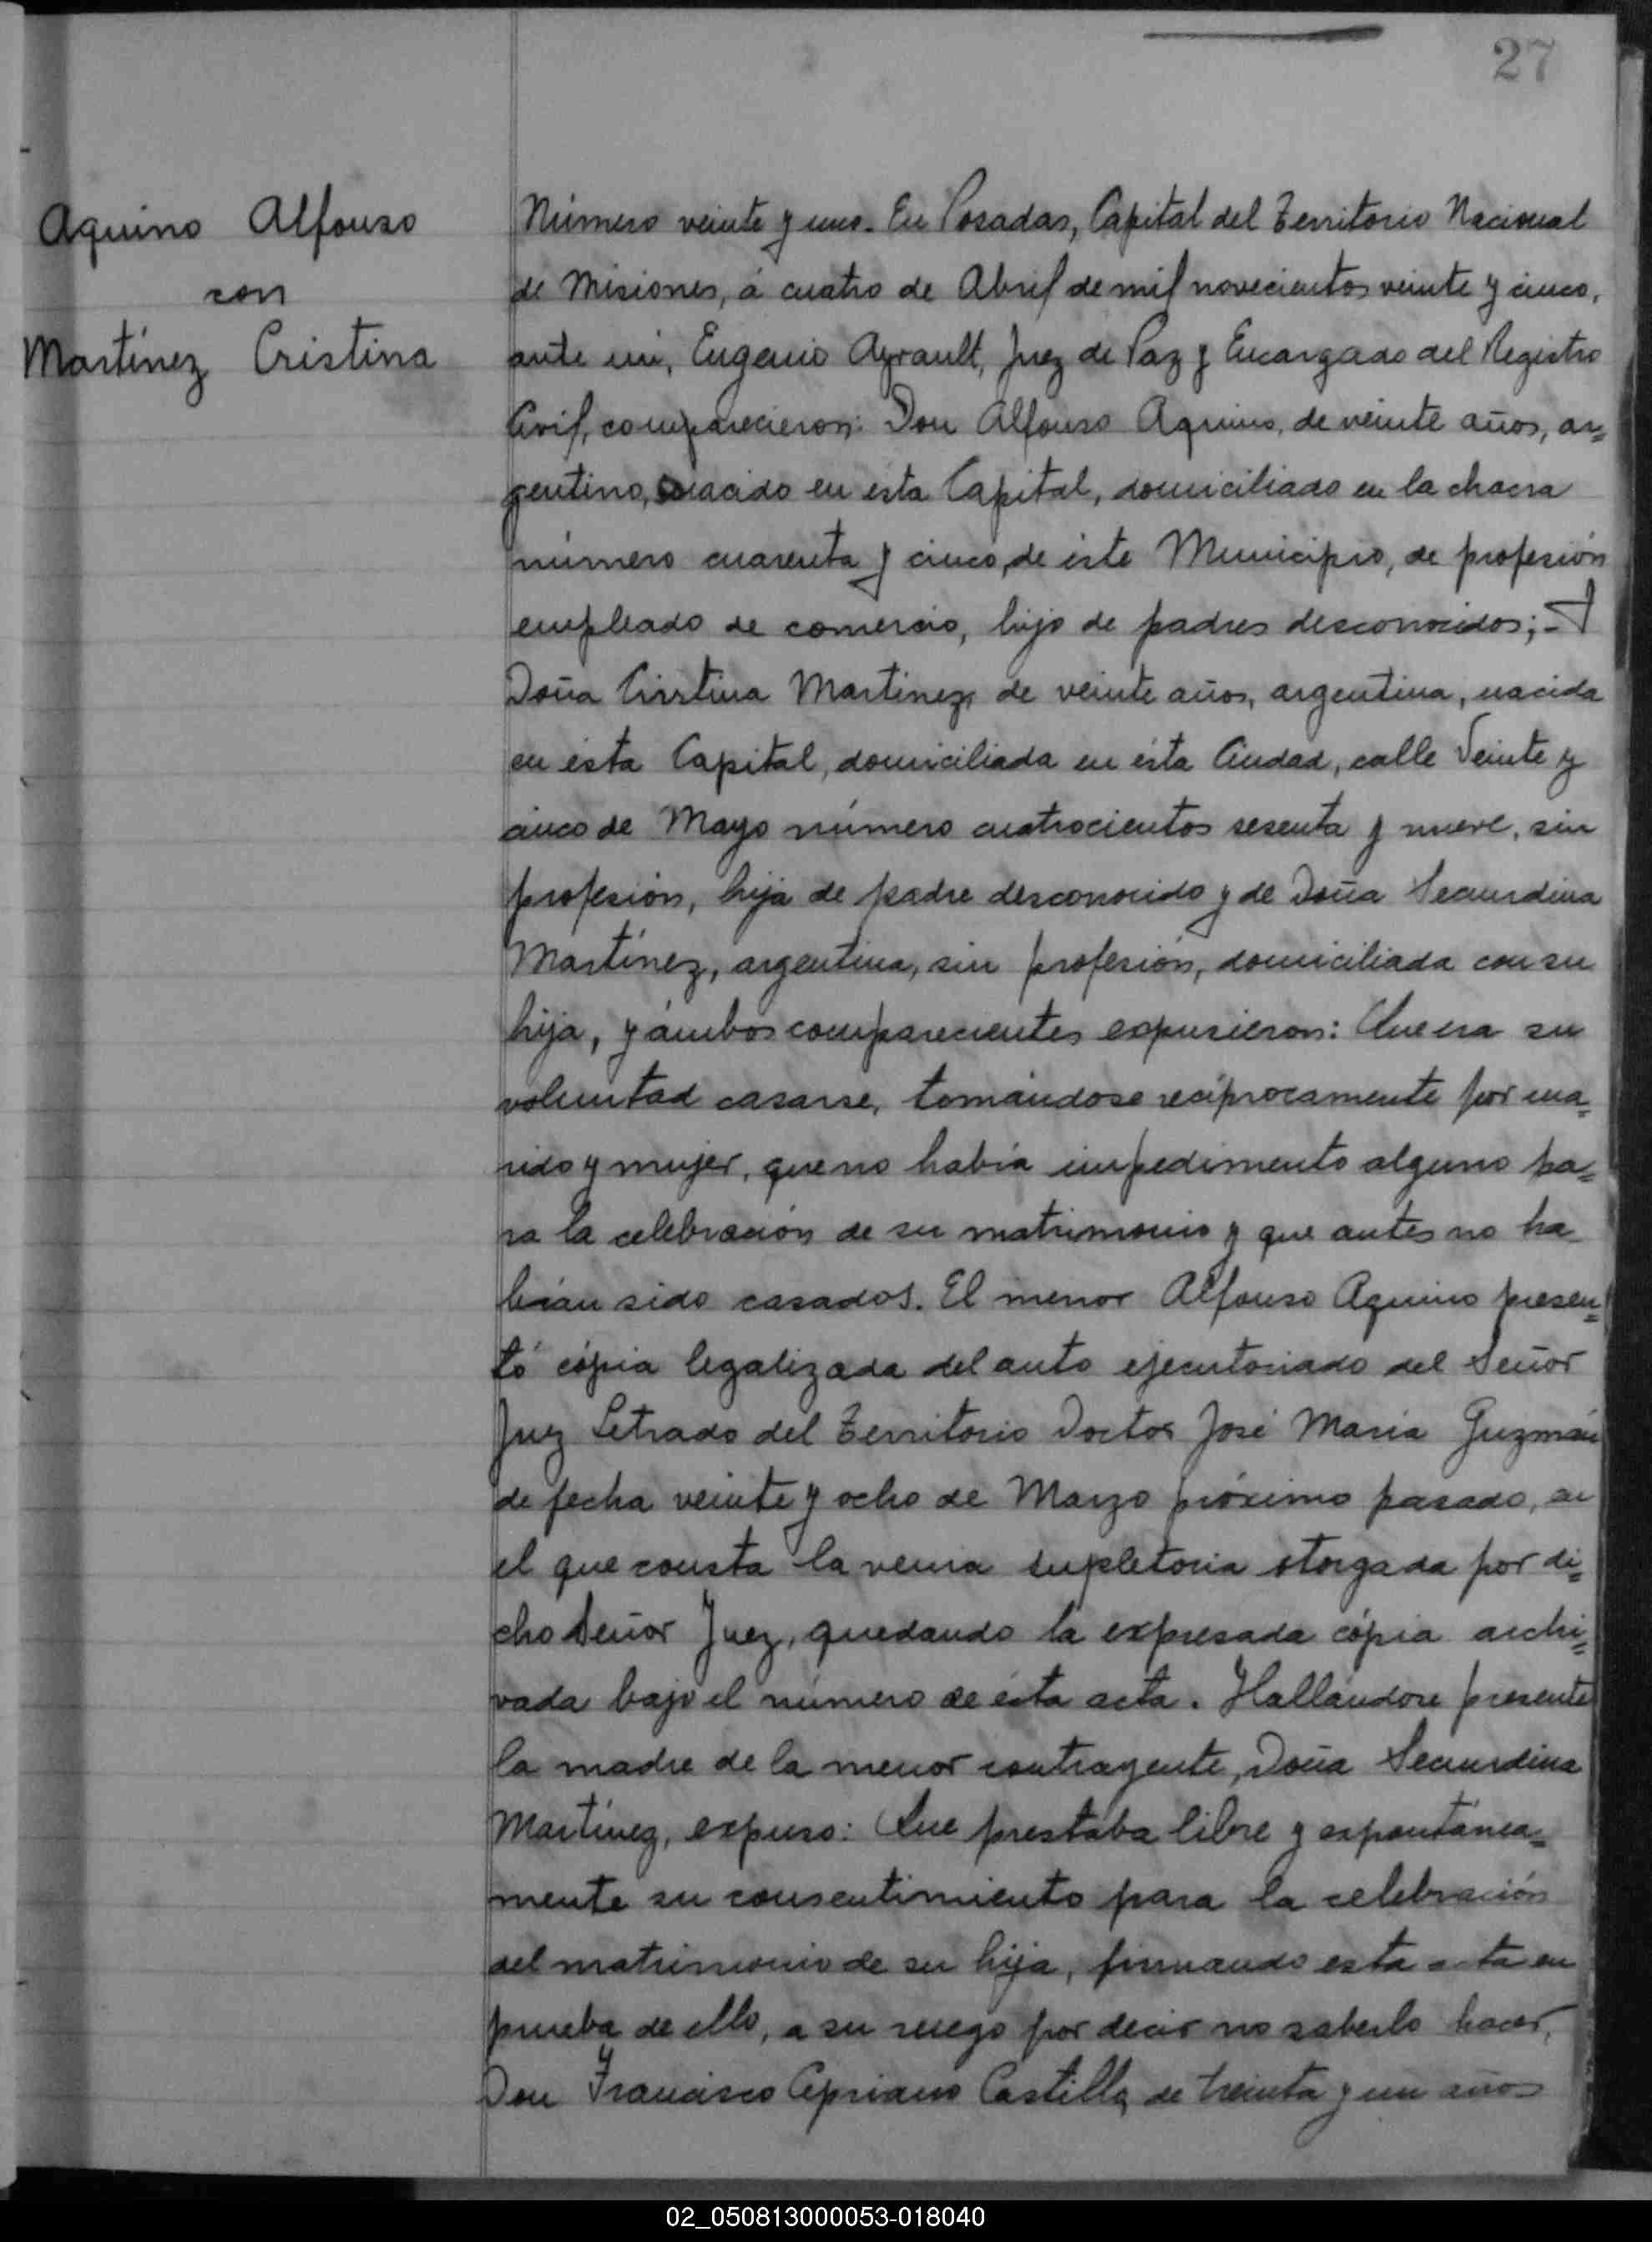 27
Aquino Alfonso
con
Martínez Cristina
Número veinte y uno. En Posadas, Capital del Territorio Nacional
de Misiones, á cuatro de Abril de mil novecientos veinte y cinco,
ante mi, Eugenio Ayrault, Juez de Paz y Encargado del Registro
Civil, comparecieron: Don Alfonso Aquino, de veinte años, ar=
gentino, nacido en esta Capital, domiciliado en la chacra
número cuarenta y cinco, de éste Municipio, de profesión
empleado de comercio, hijo de padres desconocidos; -
Doña Cristina Martínez, de veinte años, argentina, nacida
en ésta Capital, domiciliada en ésta Ciudad, calle Veinte y
cinco de Mayo número cuatrocientos sesenta y nueve, sin
profesión, hija de padre desconocido y de Doña Secundina
Martínez, argentina, sin profesión, domiciliada con su
hija, y ámbos comparecientes expusieron: Que era su
voluntad casarse, tomándose recíprocamente por ma=
rido y mujer, que no había impedimento alguno pa=
ra la celebración de su matrimonio y que antes no ha
bían sido casados. El menor Alfonso Aquino presen=
tó cópia legalizada del auto ejecutoriado del Señor
Juez Letrado del Territorio Doctor José María Guzmán
de fecha veinte y ocho de Marzo próximo pasado, en
el que consta la venia supletoria otorgada por di=
cho Señor Juez, quedando la expresada cópia archi=
vada bajo el número de ésta acta. Hallándose presente
la madre de la menor contrayente, Doña Secundina
Martínez, expuso: Que prestaba libre y espontánea=
mente su consentimiento para la celebración
del matrimonio de su hija, firmando esta acta en
prueba de ello, a su ruego por decir no saberlo hacer,
Don Francisco Cipriano Castilla, de treinta y un años
02_050813000053-018040